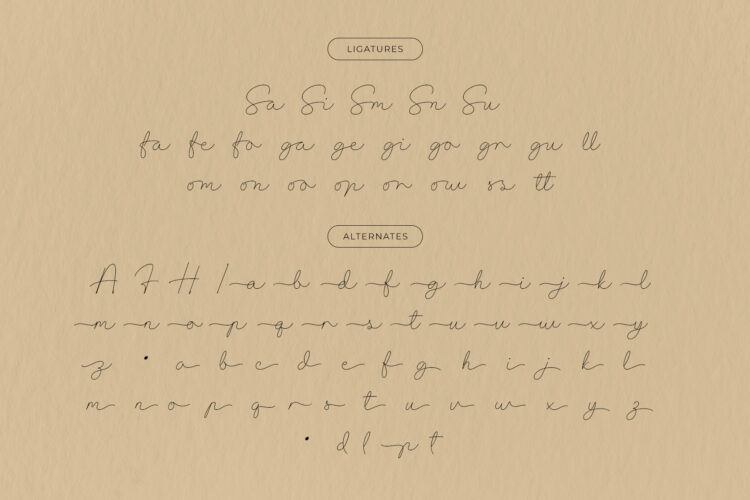 LIGATURES
Sa Si Sm Sn Su
fa fe fo ga ge gi go gn gu ll
om on oo op or ow ss tt
ALTERNATES
A F H I a b d f g h i j k l
m n o p q r s t u v w x y
z • a b c d e f g h i j k l
m n o p q r s t u v w x y z
• d l p t